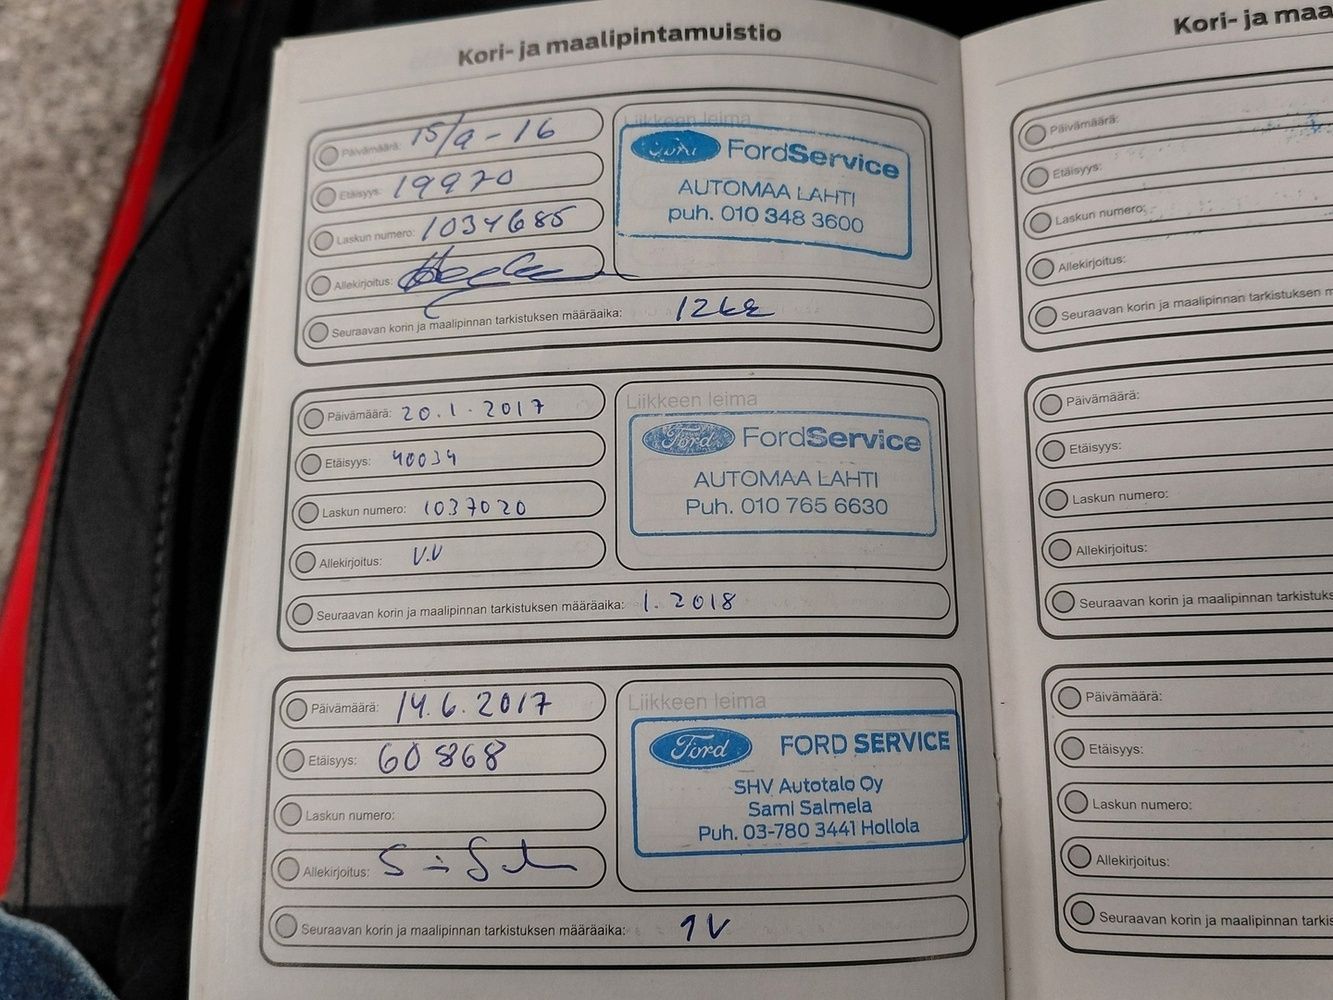 Kori- ja maalipintamuistio
Päivämäärä: 15/9 - 16
Etäisyys: 19970
Laskun numero: 1034685
Allekirjoitus:
Seuraavan korin ja maalipinnan tarkistuksen määräaika: 12kk
Liikkeen leima
Ford FordService
AUTOMAA LAHTI
puh. 010 348 3600
Päivämäärä: 20.1.2017
Etäisyys: 40034
Laskun numero: 1037020
Allekirjoitus: V.V
Seuraavan korin ja maalipinnan tarkistuksen määräaika: 1.2018
Liikkeen leima
Ford FordService
AUTOMAA LAHTI
Puh. 010 765 6630
Päivämäärä: 14.6.2017
Etäisyys: 60868
Laskun numero:
Allekirjoitus:
Seuraavan korin ja maalipinnan tarkistuksen määräaika: 1V
Liikkeen leima
Ford FORD SERVICE
SHV Autotalo Oy
Sami Salmela
Puh. 03-780 3441 Hollola
Kori- ja maa
Päivämäärä:
Etäisyys:
Laskun numero:
Allekirjoitus:
Seuraavan korin ja maalipinnan tarkistuksen m
Päivämäärä:
Etäisyys:
Laskun numero:
Allekirjoitus:
Seuraavan korin ja maalipinnan tarkistuks
Päivämäärä:
Etäisyys:
Laskun numero:
Allekirjoitus:
Seuraavan korin ja maalipinnan tarkis